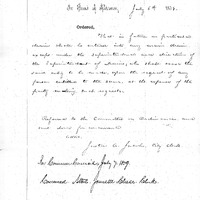 In Board of Aldermen, July 6th 1859.
Ordered,
That in future no particular
drain shall be entered into any main drain
except under the superintendence and direction of
the Superintendent of Drains, who shall cause the
same only to be made, upon the request of any
person entitled to the same at the expense of the
party making such request.
Referred to the Committee on Ordinances and
sent down for concurrence.
City Clerk
In Common Council, July 7, 1859.
Concurred Attest Clerk